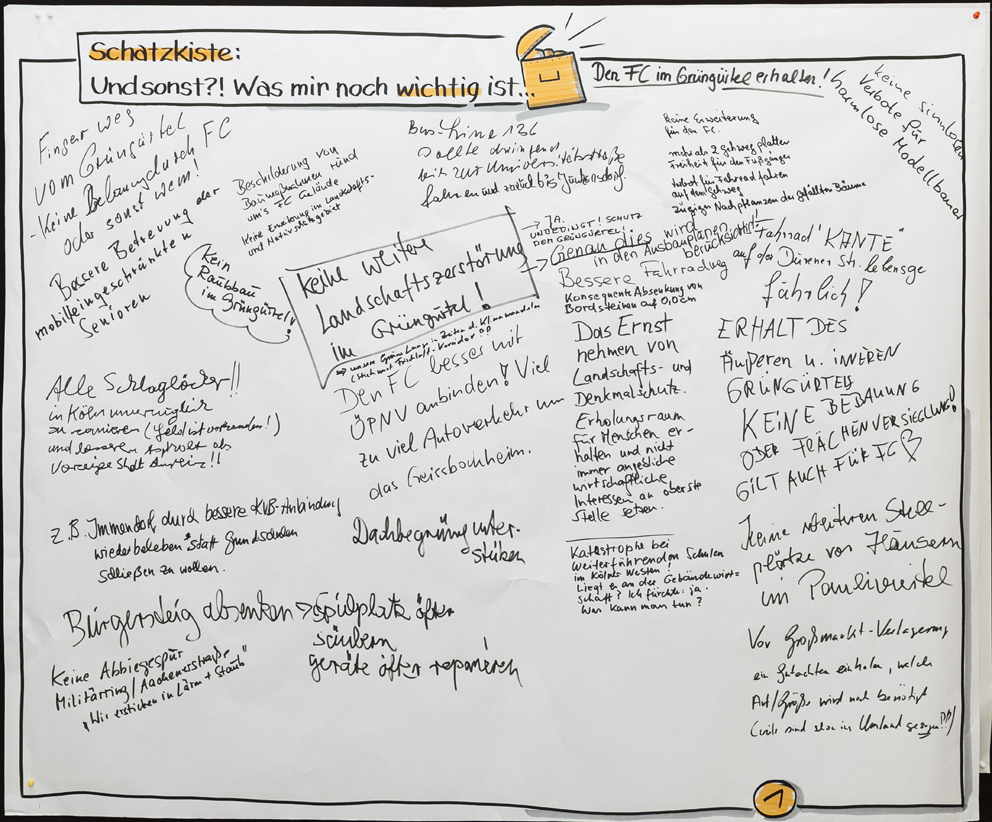 Schatzkiste:
Und sonst?! Was mir noch wichtig ist...
Den FC im Grüngürtel erhalten!
keine sinnlosen
Verbote für
harmlose Modellbauer
Finger weg
vom Grüngürtel
- Keine Bebauung durch FC
oder sonst wem!
Bessere Betreuung der
mobileingeschränkten
Senioren
Beschilderung von
Baumaßnahmen rund
um's FC Gelände
Keine Erweiterung im Landschafts-
und Naturschutzgebiet
Kein
Raubbau
im Grüngürtel!
Bus Linie 136
sollte dringend
bis zur Universitätsstraße
fahren und zurück bis
keine Erweiterung
für den FC.
mehr als 2 gehwegplatten
Freiheit für den Fußgänger
Verbot für Fahrrad fahren
auf dem Gehweg
zügiges Nachpflanzen der gefällten Bäume
keine weitere
Landschaftszerstörung
im Grüngürtel!
→ unsere Grüne Lunge in Zeiten d. Klimawandels
(Stichwort Frischluft-Korridor!!)
→ JA.
UNBEDINGT! SCHUTZ
DEM GRÜNGÜRTEL!
→ Genau dies wird
in den Ausbauplänen berücksichtigt!
Bessere Fahrradweg
Konsequente Absenkung von
Bordsteinen auf 0,0 cm
Fahrrad "KANTE"
auf der Dürener Str. lebensge
fährlich!
Das Ernst
nehmen von
Landschafts- und
Denkmalschutz.
Erholungsraum
für Menschen er-
halten und nicht
immer angebliche
wirtschaftliche
Interessen an oberste
Stelle setzen.
ERHALT DES
ÄUßEREN U. INNEREN
GRÜNGÜRTELS
KEINE BEBAUUNG
ODER FLÄCHENVERSIEGLUNG!
GILT AUCH FÜR FC
Alle Schlaglöcher!!
in Köln unverzüglich
zu sanieren (Geld ist vorhanden!)
und besseren Asphalt als
Den FC besser mit
ÖPNV anbinden! Viel
zu viel Autoverkehr um
das Geissbockheim.
z.B. Immendorf durch bessere KVB-Anbindung
wiederbeleben statt Grundschulen
schließen zu wollen.
Dachbegrünung unter-
stützen
Katastrophe bei
weiterführenden Schulen
im Kölner Westen!
Liegt es an der Gebäudewirt=
schaft? Ich fürchte: ja.
Was kann man tun?
Keine weiteren Stell-
plätze vor Häusern
im Pauliviertel
Bürgersteig absenken → Spielplatz öfter
säubern
geräte öfter reparieren
Keine Abbiegespur
Militärring/Aachenerstraße
"Wir ersticken in Lärm + Staub"
Vor Großmarkt-Verlagerung
ein Gutachten einholen, welch
Art/Größe wird noch benötigt
(viele sind schon ins Umland gezogen!!!)
1